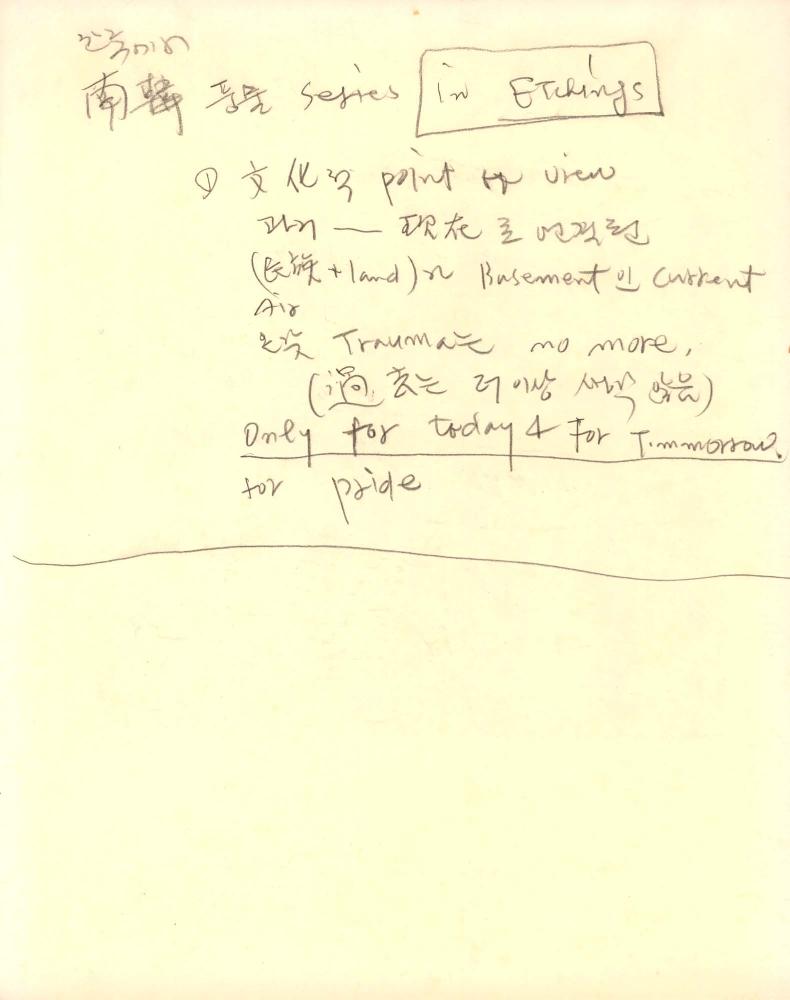 한국에서
南韓 풍물 series in Etchings
① 文化적 point of view
과거 — 現在로 연결된
(民族 + land) Basement인 current
Air
온갖 Trauma는 no more,
(過去는 더이상 생각 않음)
Only for today & for Timmorrow.
for pride